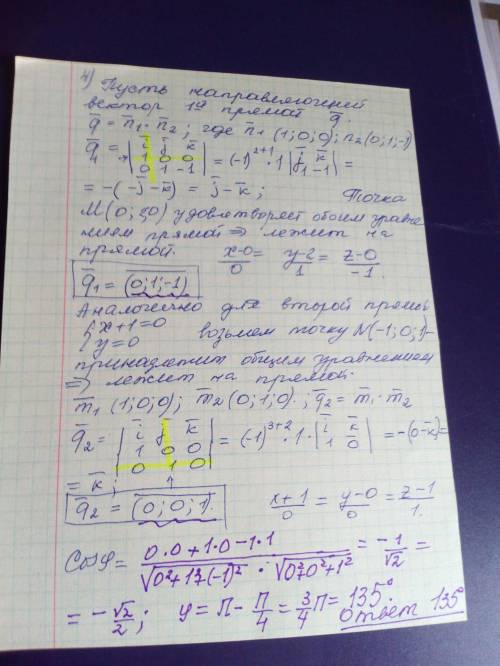 4) Пусть направляющий
вектор 1ой прямой q̄.
q̄ = n̄₁ · n̄₂; где n̄₁ (1; 0; 0); n₂ (0; 1; -1)
q̄₁ = | i̅ j̅ k̅ ; 1 0 0 ; 0 1 -1 | = (-1)²⁺¹ · 1 | j̅ k̅ ; 1 -1 | =
= -(-j̅ - k̅) = j̅ - k̅; Точка
M(0; 2; 0) удовлетворяет обоим уравне
нием прямой ⇒ лежит на
прямой. (x-0)/0 = (y-2)/1 = (z-0)/-1.
q̄₁ = (0; 1; -1)
Аналогично для второй прямой
{ x+1=0 ; y=0 возьмем точку N(-1; 0; 1)-
принадлежит общим уравнением
⇒ лежит на прямой.
m̄₁ (1; 0; 0); m̄₂ (0; 1; 0). ; q̄₂ = m̄₁ · m̄₂
q̄₂ = | i̅ j̅ k̅ ; 1 0 0 ; 0 1 0 | = (-1)³⁺² · 1 · | i̅ k̅ ; 1 0 | = -(0-k̅) =
= k̅;
q̄₂ = (0; 0; 1). (x+1)/0 = (y-0)/0 = (z-1)/1.
Cosφ = (0·0+1·0-1·1)/(√(0²+1²+(-1)²) · √(0²+0²+1²)) = -1/√2 =
= -√2/2; φ = π - π/4 = 3/4 π = 135°.
Ответ 135°